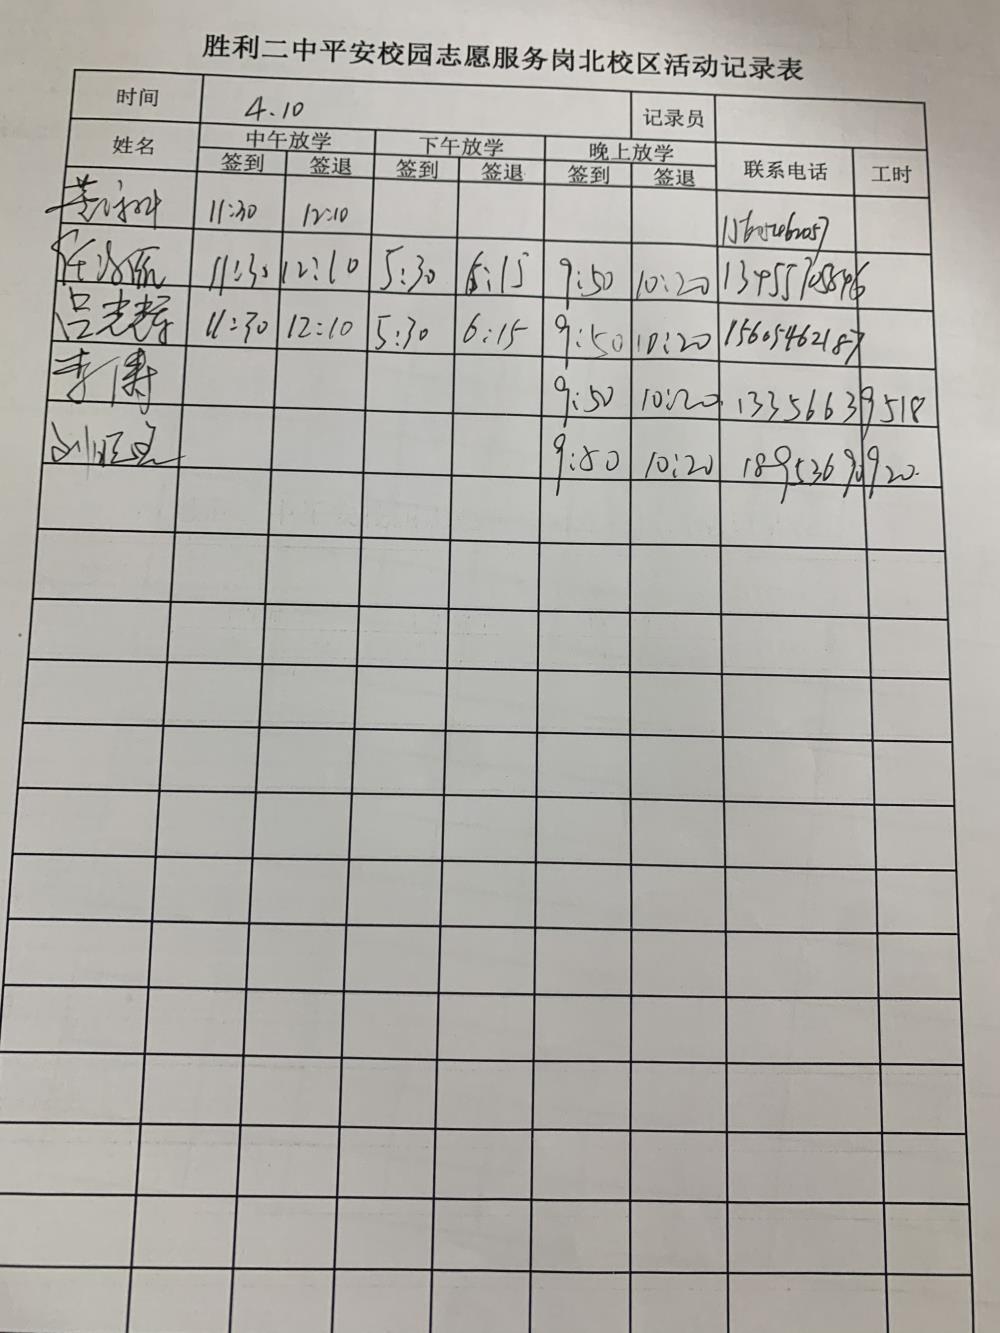 胜利二中平安校园志愿服务岗北校区活动记录表
时间 4.10 记录员
姓名 中午放学 下午放学 晚上放学 联系电话 工时
签到 签退 签到 签退 签到 签退
11:30 12:10
11:30 12:10 5:30 6:15 9:50 10:20
吕光辉 11:30 12:10 5:30 6:15 9:50 10:20 15605462187
李傳 9:50 10:20 13356639518
9:50 10:20 18953690920